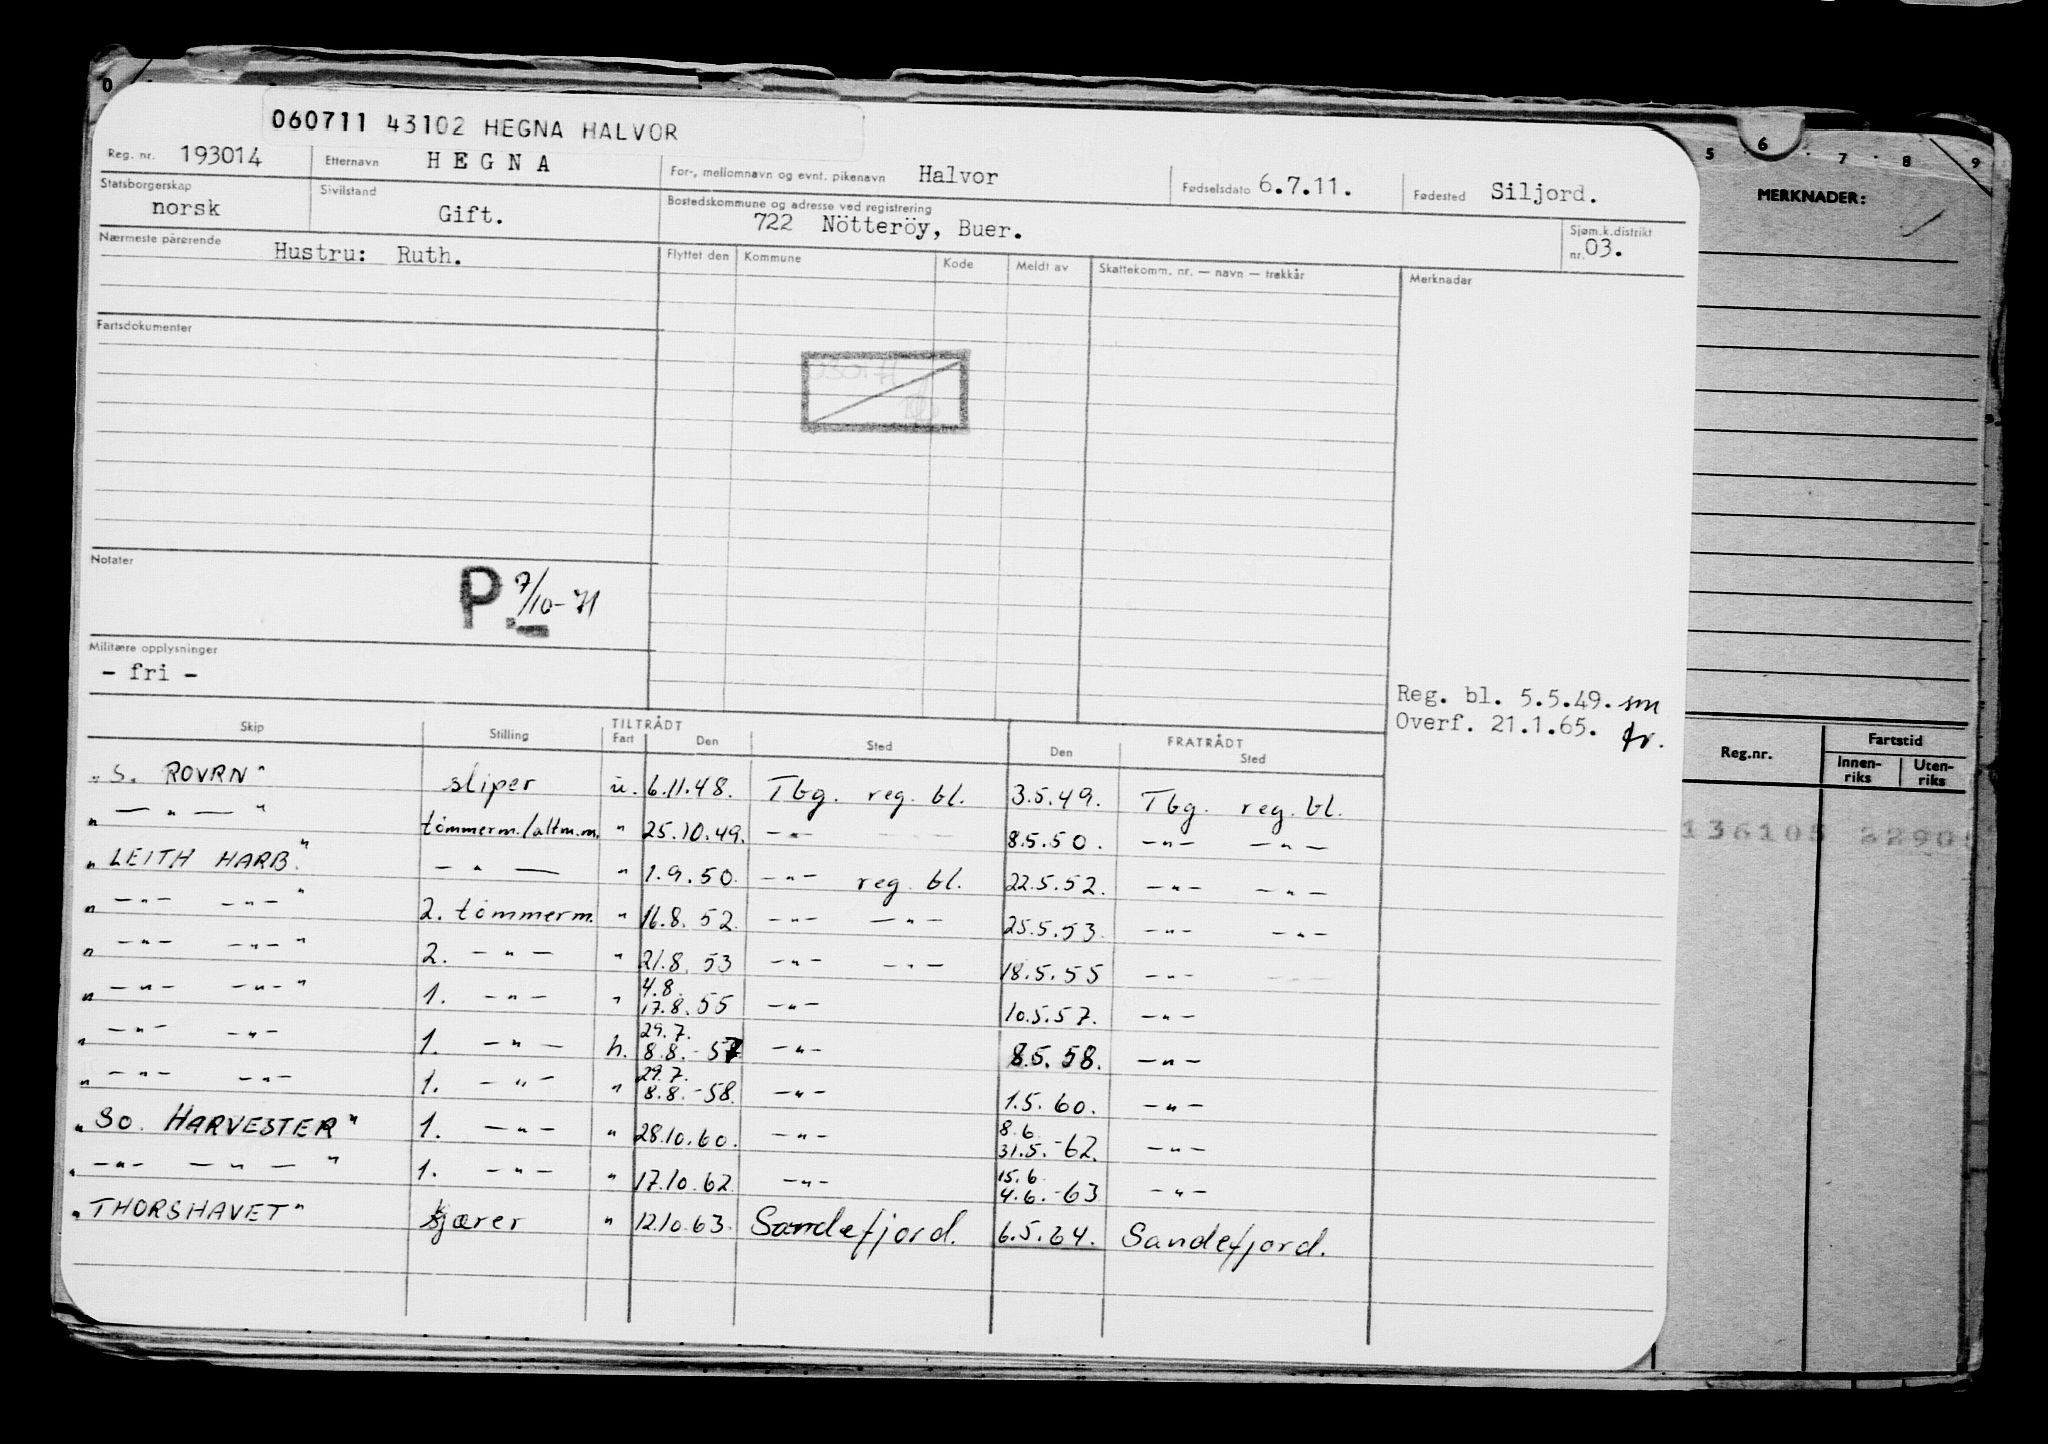 060711 43102 HEGNA HALVOR
Reg. nr. 193014 Etternavn HEGNA For-, mellomnavn og evnt. pikenavn Halvor Fødselsdato 6.7.11. Fødested Siljord.
Statsborgerskap norsk Sivilstand Gift. Bostedskommune og adresse ved registrering 722 Nötteröy, Buer. Sjøm.k.distrikt nr. 03.
Nærmeste pårørende Hustru: Ruth.
Flyttet den Kommune Kode Meldt av Skattekomm. nr. — navn — trekkår Merknader
Fartsdokumenter
Notater
P. 7/10-71
Militære opplysninger
- fri -
Reg. bl. 5.5.49. sm
Overf. 21.1.65. fr.
TILTRÅDT FRATRÅDT
Skip Stilling Fart Den Sted Den Sted
"S. ROVRN" sliper u. 6.11.48. Tbg. reg. bl. 3.5.49. Tbg. reg. bl.
" — " — " tømmerm./altm.m. " 25.10.49. — " — 8.5.50. — " — — " —
"LEITH HARB." — " — " 1.9.50. — " — reg. bl. 22.5.52. — " — — " —
" — " — — " — " 2. tømmerm. " 16.8.52. — " — — " — 25.5.53. — " — — " —
" — " — — " — " 2. — " — " 21.8.53 — " — — " — 18.5.55 — " —
" — " — — " — " 1. — " — " 4.8. 17.8.55 — " — 10.5.57. — " —
" — " — — " — 1. — " — h. 29.7. 8.8.-57 — " — 8.5.58. — " —
" — " — — " — 1. — " — " 29.7. 8.8.-58. — " — 1.5.60. — " —
"SO. HARVESTER" 1. — " — " 28.10.60. — " — 8.6. 31.5.-62. — " —
" — " — — " — " 1. — " — " 17.10.62. — " — 15.6. 4.6.-63 — " —
"THORSHAVET" kjærer " 12.10.63. Sandefjord. 6.5.64. Sandefjord.
0 5 6 7 8 9
MERKNADER:
Reg.nr. Fartstid
Innen-riks Uten-riks
136105